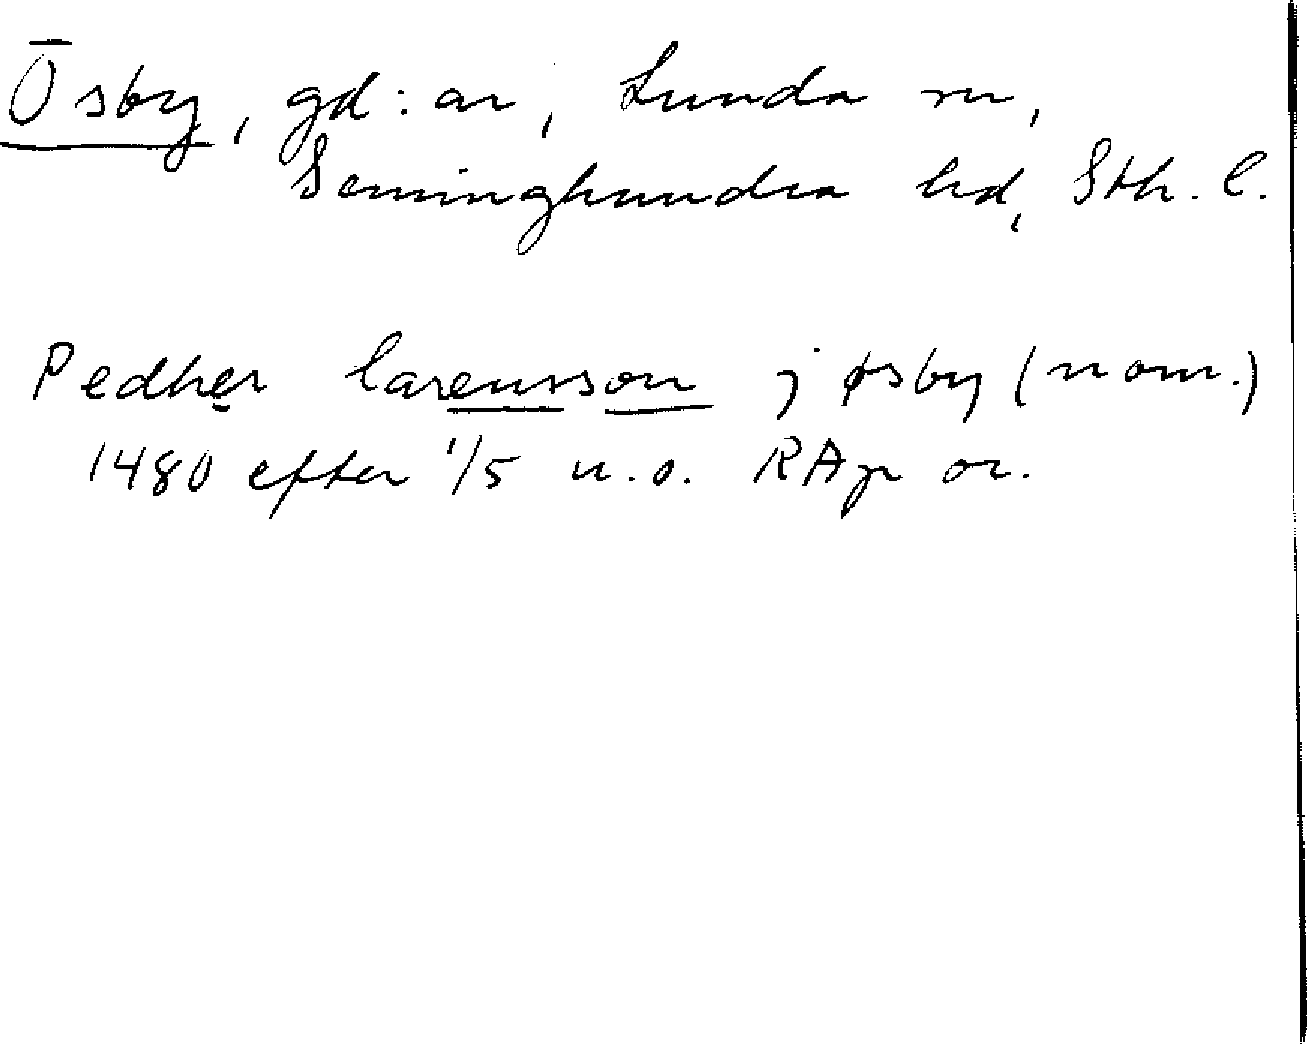 Ösby, gd:ar, Lunda sn,
Seminghundra hd, Sth. l.
Pedher larensson j øsby (nom.)
1480 efter 1/5 u.o. RAp or.